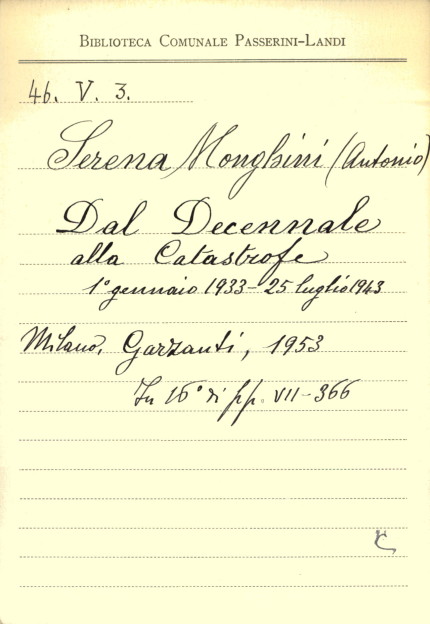 BIBLIOTECA COMUNALE PASSERINI-LANDI
46. V. 3.
Serena Monghini (Antonio)
Dal Decennale
alla Catastrofe
1° gennaio 1933 - 25 luglio 1943
Milano, Garzanti, 1953
In 16° di pp. VII-366